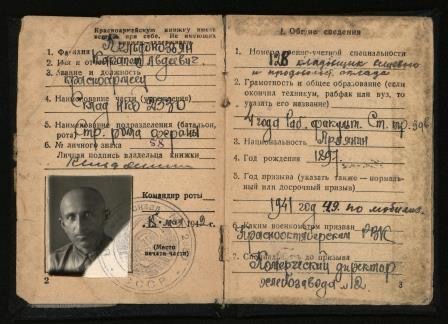 Красноармейскую книжку иметь
всегда при себе. Не имеющих
1. Фамилия
2. Имя и отчество Карапет Авдеевич
3. Звание и должность
красноармеец
4. Наименование части
Склад НКО
5. Наименование подразделения (батальон,
рота) стр. рота охраны
6. № личного знака 58
Личная подпись владельца книжки
Командир роты
15 мая 1942 г.
(Место
печати части)
СССР
2
I. Общие сведения
1. Номер военно-учетной специальности
128 кладовщик вещевого
и продовольств. склада
2. Грамотность и общее образование (если
окончил техникум, рабфак или вуз, то
указать его название)
4 года Раб. факульт. Ст.
3. Национальность Армянин
4. Год рождения 1897
5. Год призыва (указать также — нормаль-
ный или досрочный призыв)
1941 год по мобилиз.
6. Каким военкоматом призван
Краснооктябрьским РВК
до призыва
Комерческий директор
хлебозавода №2
3